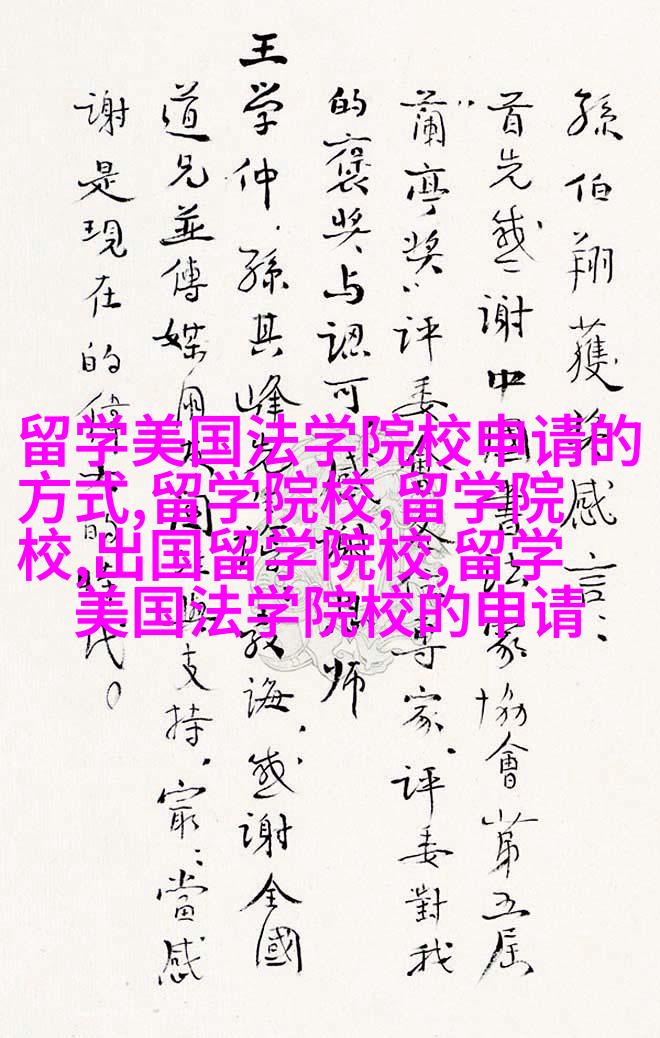 孫伯翔獲感言：
首先感謝中国書法家協會第五届
“蘭亭奖”评委會专家、评委對我
的褒奖与認可感謝师
王学仲、孫其峰先教誨，感谢全國
道兄並傳媒支持，最：當感
謝是現在的偉的代。
留学美国法学院校申请的
方式,留学院校,留学院
校,出国留学院校,留学
美国法学院校的申请